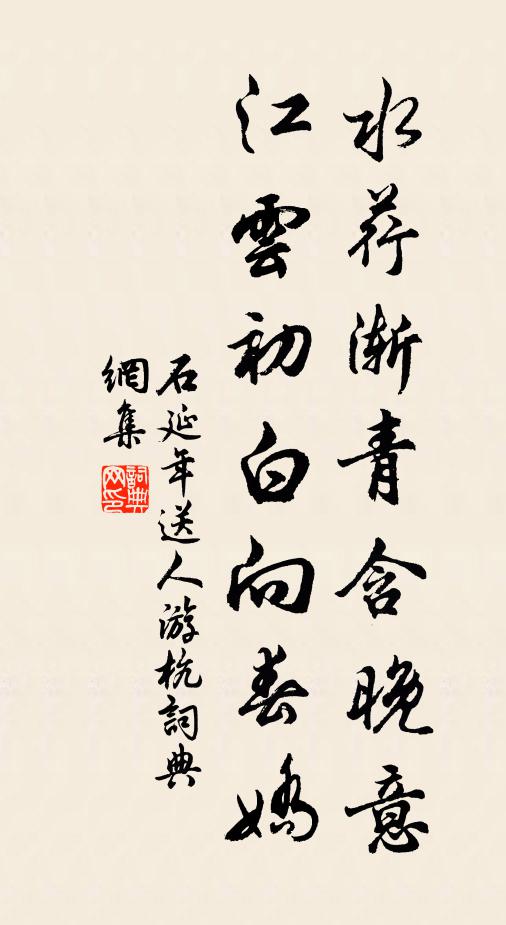 水荇漸青含晚意
江雲初白向春嬌
石延年送人游杭詞典
網集
詞典网印